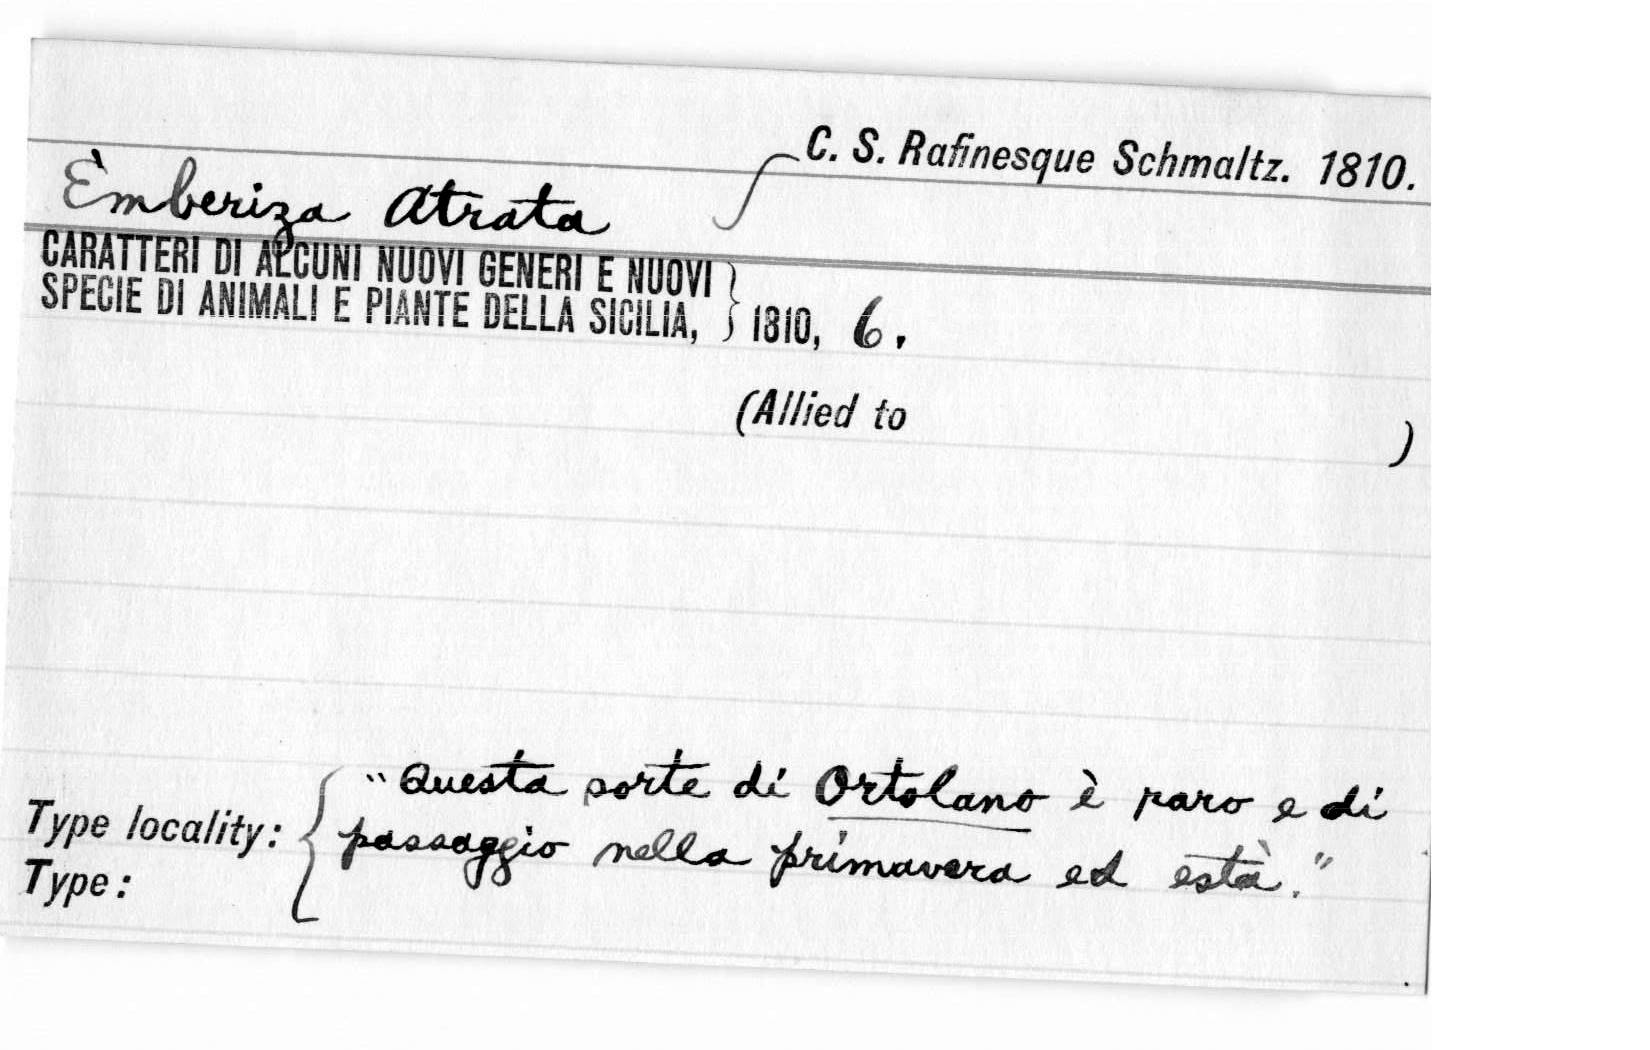 C. S. Rafinesque Schmaltz. 1810.
Emberiza Atrata
CARATTERI DI ALCUNI NUOVI GENERI E NUOVI
SPECIE DI ANIMALI E PIANTE DELLA SICILIA, } 1810, 6.
(Allied to )
"Questa sorte di Ortolano è raro e di
Type locality: { passaggio nella primavera ed està."
Type: